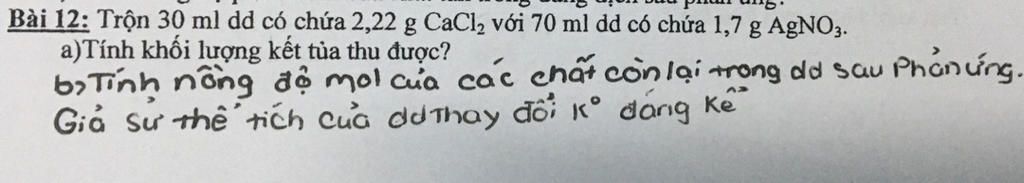 Bài 12: Trộn 30 ml dd có chứa 2,22 g CaCl₂ với 70 ml dd có chứa 1,7 g AgNO₃.
a)Tính khối lượng kết tủa thu được?
b, Tính nồng độ mol của các chất còn lại trong dd sau Phản ứng.
Giả sử thể tích của dd Thay đổi k° đáng kể